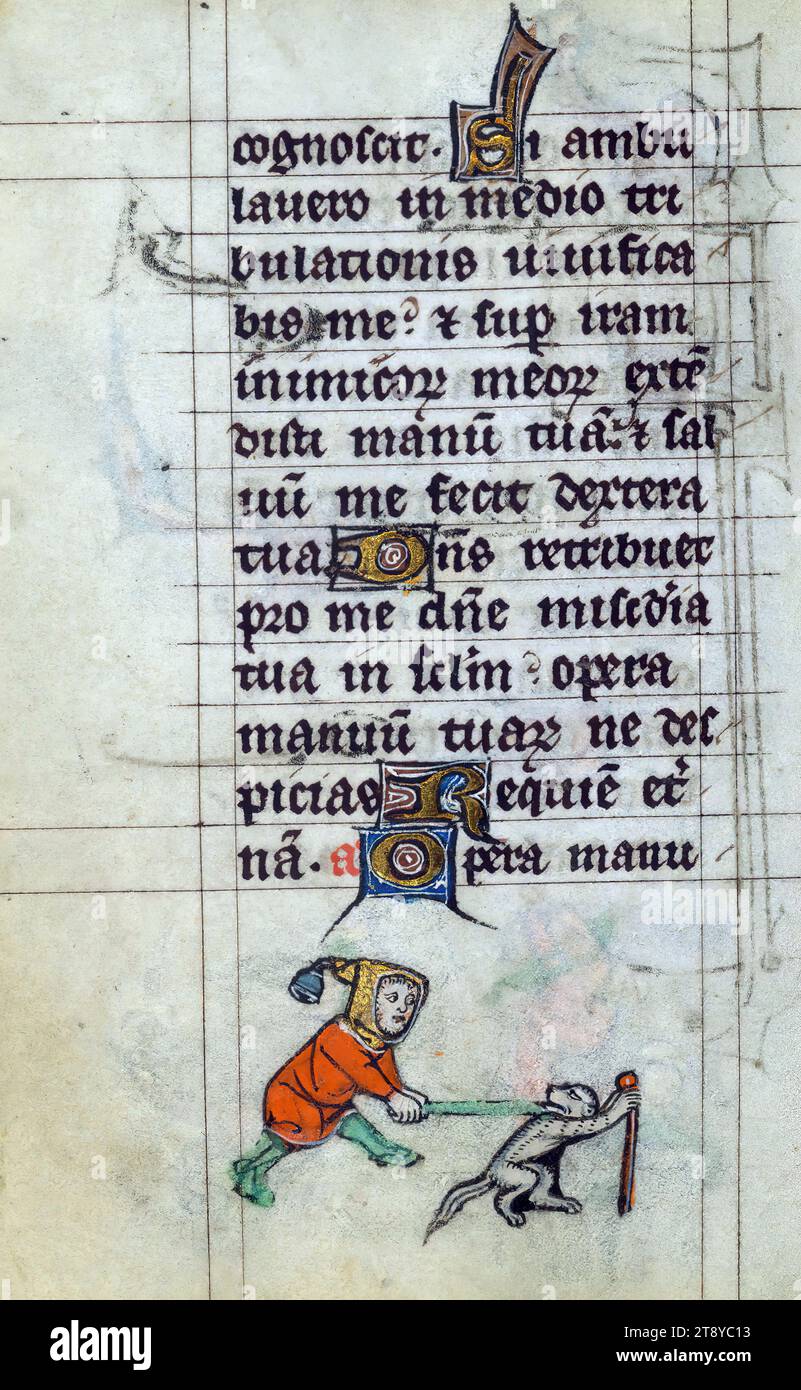 cognoscit. Si ambu
lauero in medio tri
bulationis uiuifica
bis me? ⁊ sup iram
inimicoꝝ meoꝝ extē
disti manū tuā. ⁊ sal
uū me fecit dextera
tua Dn̄s retribuet
pro me dn̄e misc̄dia
tua in sc̄lm? opera
manuū tuaꝝ ne des
picias Requiē et
nā. a Opera manu
alamy
Image ID: 2T8YC13
www.alamy.com